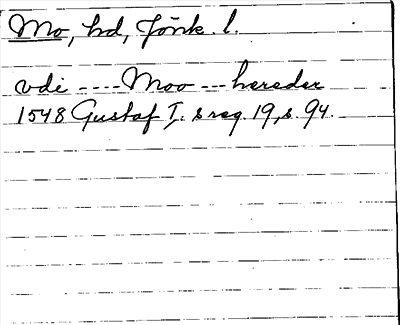 Mo, hd, Jönk l.
vdi ---- Moo --- hereder
1548 Gustaf I. s reg. 19, s. 94.